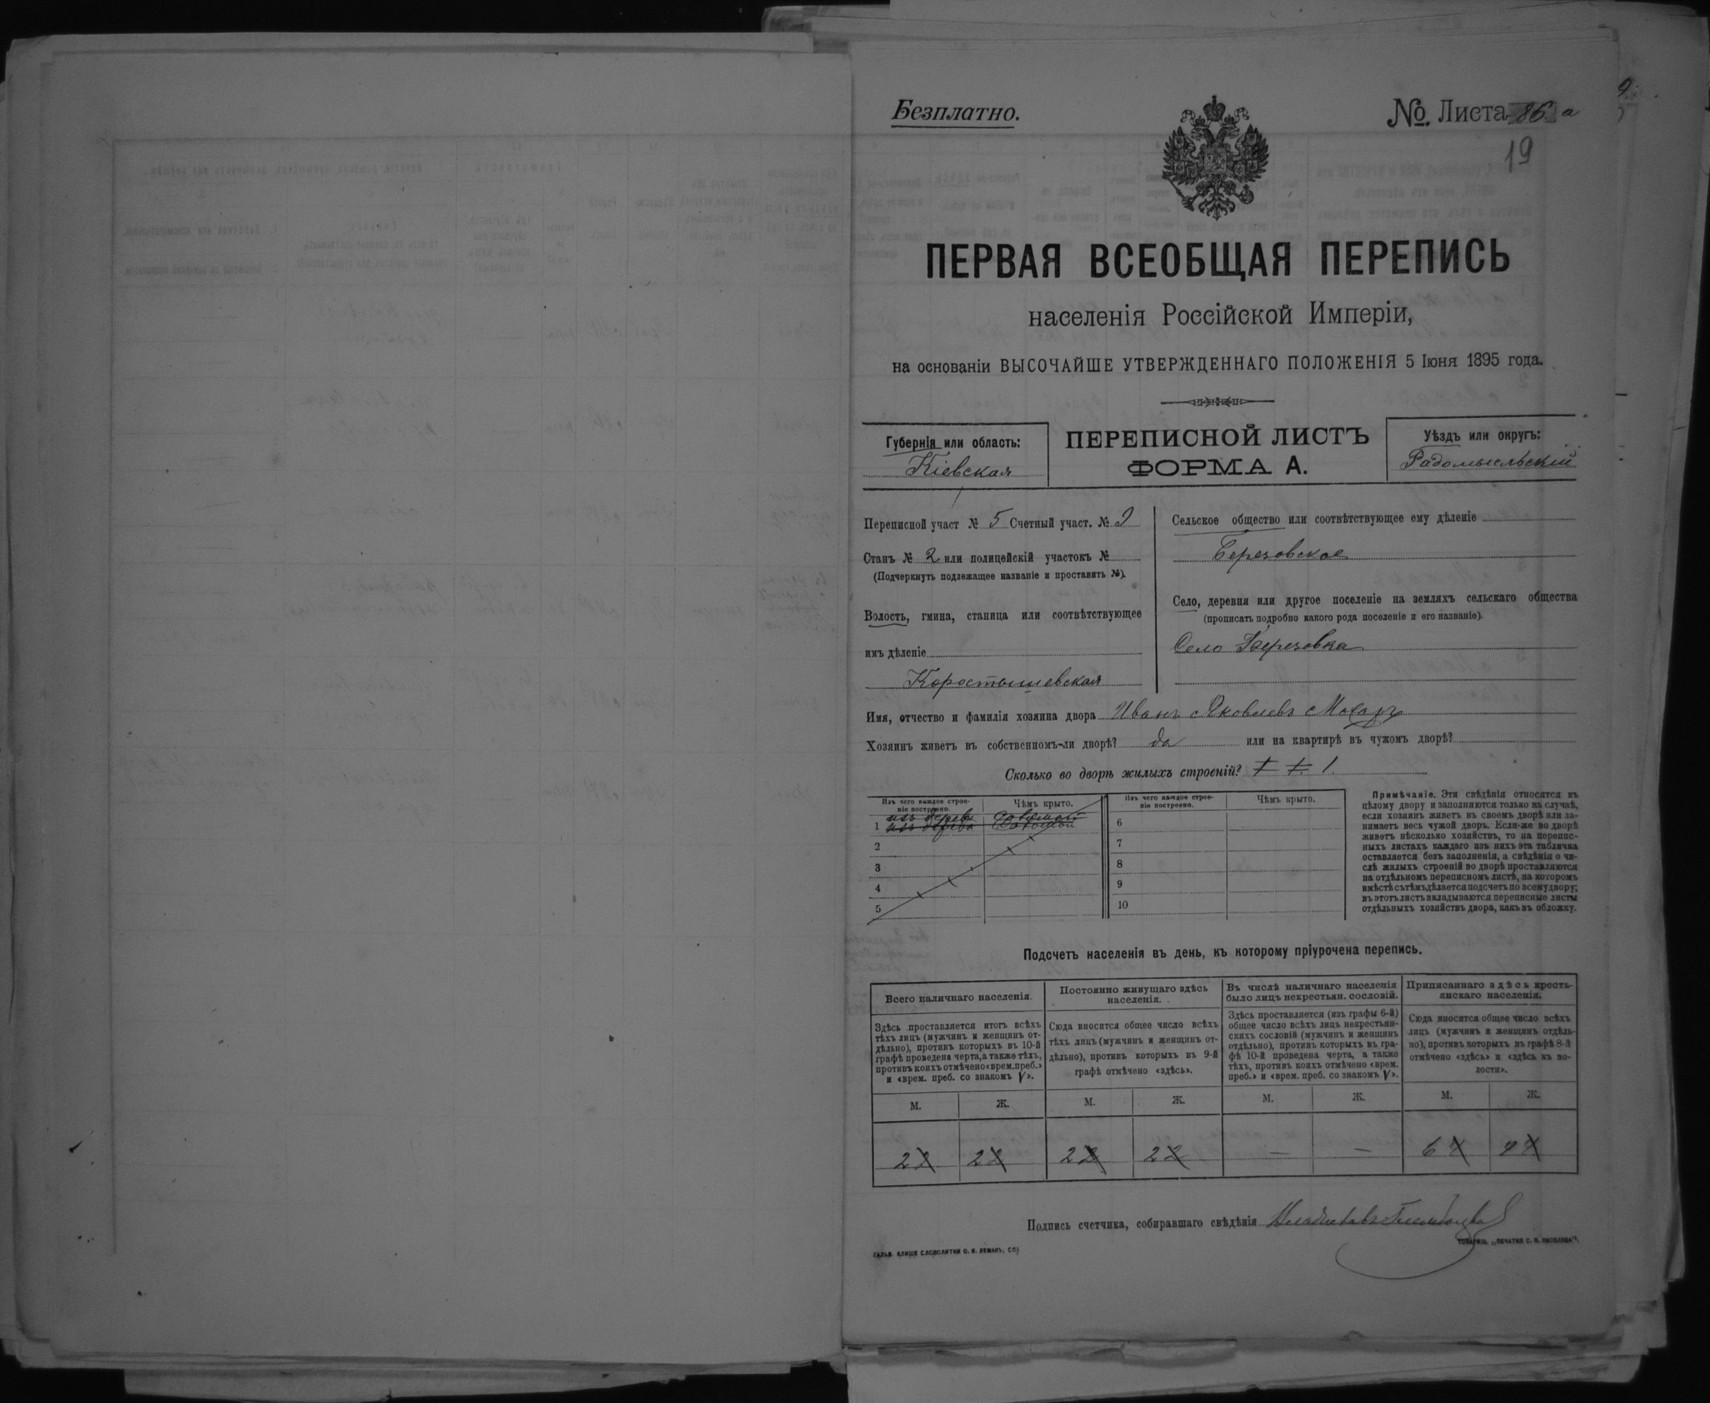 Безплатно.
№ Листа 86 а
19
ПЕРВАЯ ВСЕОБЩАЯ ПЕРЕПИСЬ
населенія Россійской Имперіи,
на основаніи ВЫСОЧАЙШЕ УТВЕРЖДЕННАГО ПОЛОЖЕНІЯ 5 Іюня 1895 года.
Губернія или область:
Кіевская
ПЕРЕПИСНОЙ ЛИСТЪ
ФОРМА А.
Уѣздъ или округъ:
Радомысльскій
Переписной участ № 5 Счетный участ. №
Станъ № 2 или полицейскій участокъ №
(Подчеркнуть подлежащее названіе и проставить №).
Волость, гмина, станица или соотвѣтствующее
имъ дѣленіе
Коростышевская
Сельское общество или соотвѣтствующее ему дѣленіе
Березовское
Село, деревня или другое поселеніе на земляхъ сельскаго общества
(прописать подробно какого рода поселеніе и его названіе).
Село Березовка
Имя, отчество и фамилія хозяина двора Иванъ Яковлевъ
Хозяинъ живетъ въ собственномъ-ли дворѣ? да или на квартирѣ въ чужомъ дворѣ?
Сколько во дворѣ жилыхъ строеній? 1 1. 1.
Изъ чего каждое строе-
ніе построено.
Чѣмъ крыто.
Изъ чего каждое строе-
ніе построено.
Чѣмъ крыто.
изъ дерева соломой
1 изъ дерева соломой
2
3
4
5
6
7
8
9
10
Примѣчаніе. Эти свѣдѣнія относятся къ
цѣлому двору и заполняются только въ случаѣ,
если хозяинъ живетъ въ своемъ дворѣ или за-
нимаетъ весь чужой дворъ. Если-же во дворѣ
живетъ нѣсколько хозяйствъ, то на перепис-
ныхъ листахъ каждаго изъ нихъ эта табличка
оставляется безъ заполненія, а свѣдѣнія о чи-
слѣ жилыхъ строеній во дворѣ проставляются
на отдѣльномъ переписномъ листѣ, на которомъ
вмѣстѣ съ тѣмъ дѣлается подсчетъ по всему двору;
въ этотъ листъ вкладываются переписные листы
отдѣльныхъ хозяйствъ двора, какъ въ обложку.
Подсчетъ населенія въ день, къ которому пріурочена перепись.
Всего наличнаго населенія.
Здѣсь проставляется итогъ всѣхъ
тѣхъ лицъ (мужчинъ и женщинъ от-
дѣльно), противъ которыхъ въ 10-й
графѣ проведена черта, а также тѣхъ,
противъ коихъ отмѣчено «врем. преб.»
и «врем. преб. со знакомъ V».
Постоянно живущаго здѣсь
населенія.
Сюда вносится общее число всѣхъ
тѣхъ лицъ (мужчинъ и женщинъ от-
дѣльно), противъ которыхъ въ 9-й
графѣ отмѣчено «здѣсь».
Въ числѣ наличнаго населенія
было лицъ некрестьян. сословій.
Здѣсь проставляется (изъ графы 6-й)
общее число всѣхъ лицъ некрестьян-
скихъ сословій (мужчинъ и женщинъ
отдѣльно), противъ которыхъ въ гра-
фѣ 10-й проведена черта, а также
тѣхъ, противъ коихъ отмѣчено «врем.
преб.» и «врем. преб. со знакомъ V».
Приписаннаго здѣсь кресть-
янскаго населенія.
Сюда вносится общее число всѣхъ
лицъ (мужчинъ и женщинъ отдѣль-
но), противъ которыхъ въ графѣ 8-й
отмѣчено «здѣсь» и «здѣсь въ во-
лости».
М. Ж. М. Ж. М. Ж. М. Ж.
2 2 2 2 — — 6
Подпись счетчика, собиравшаго свѣдѣнія